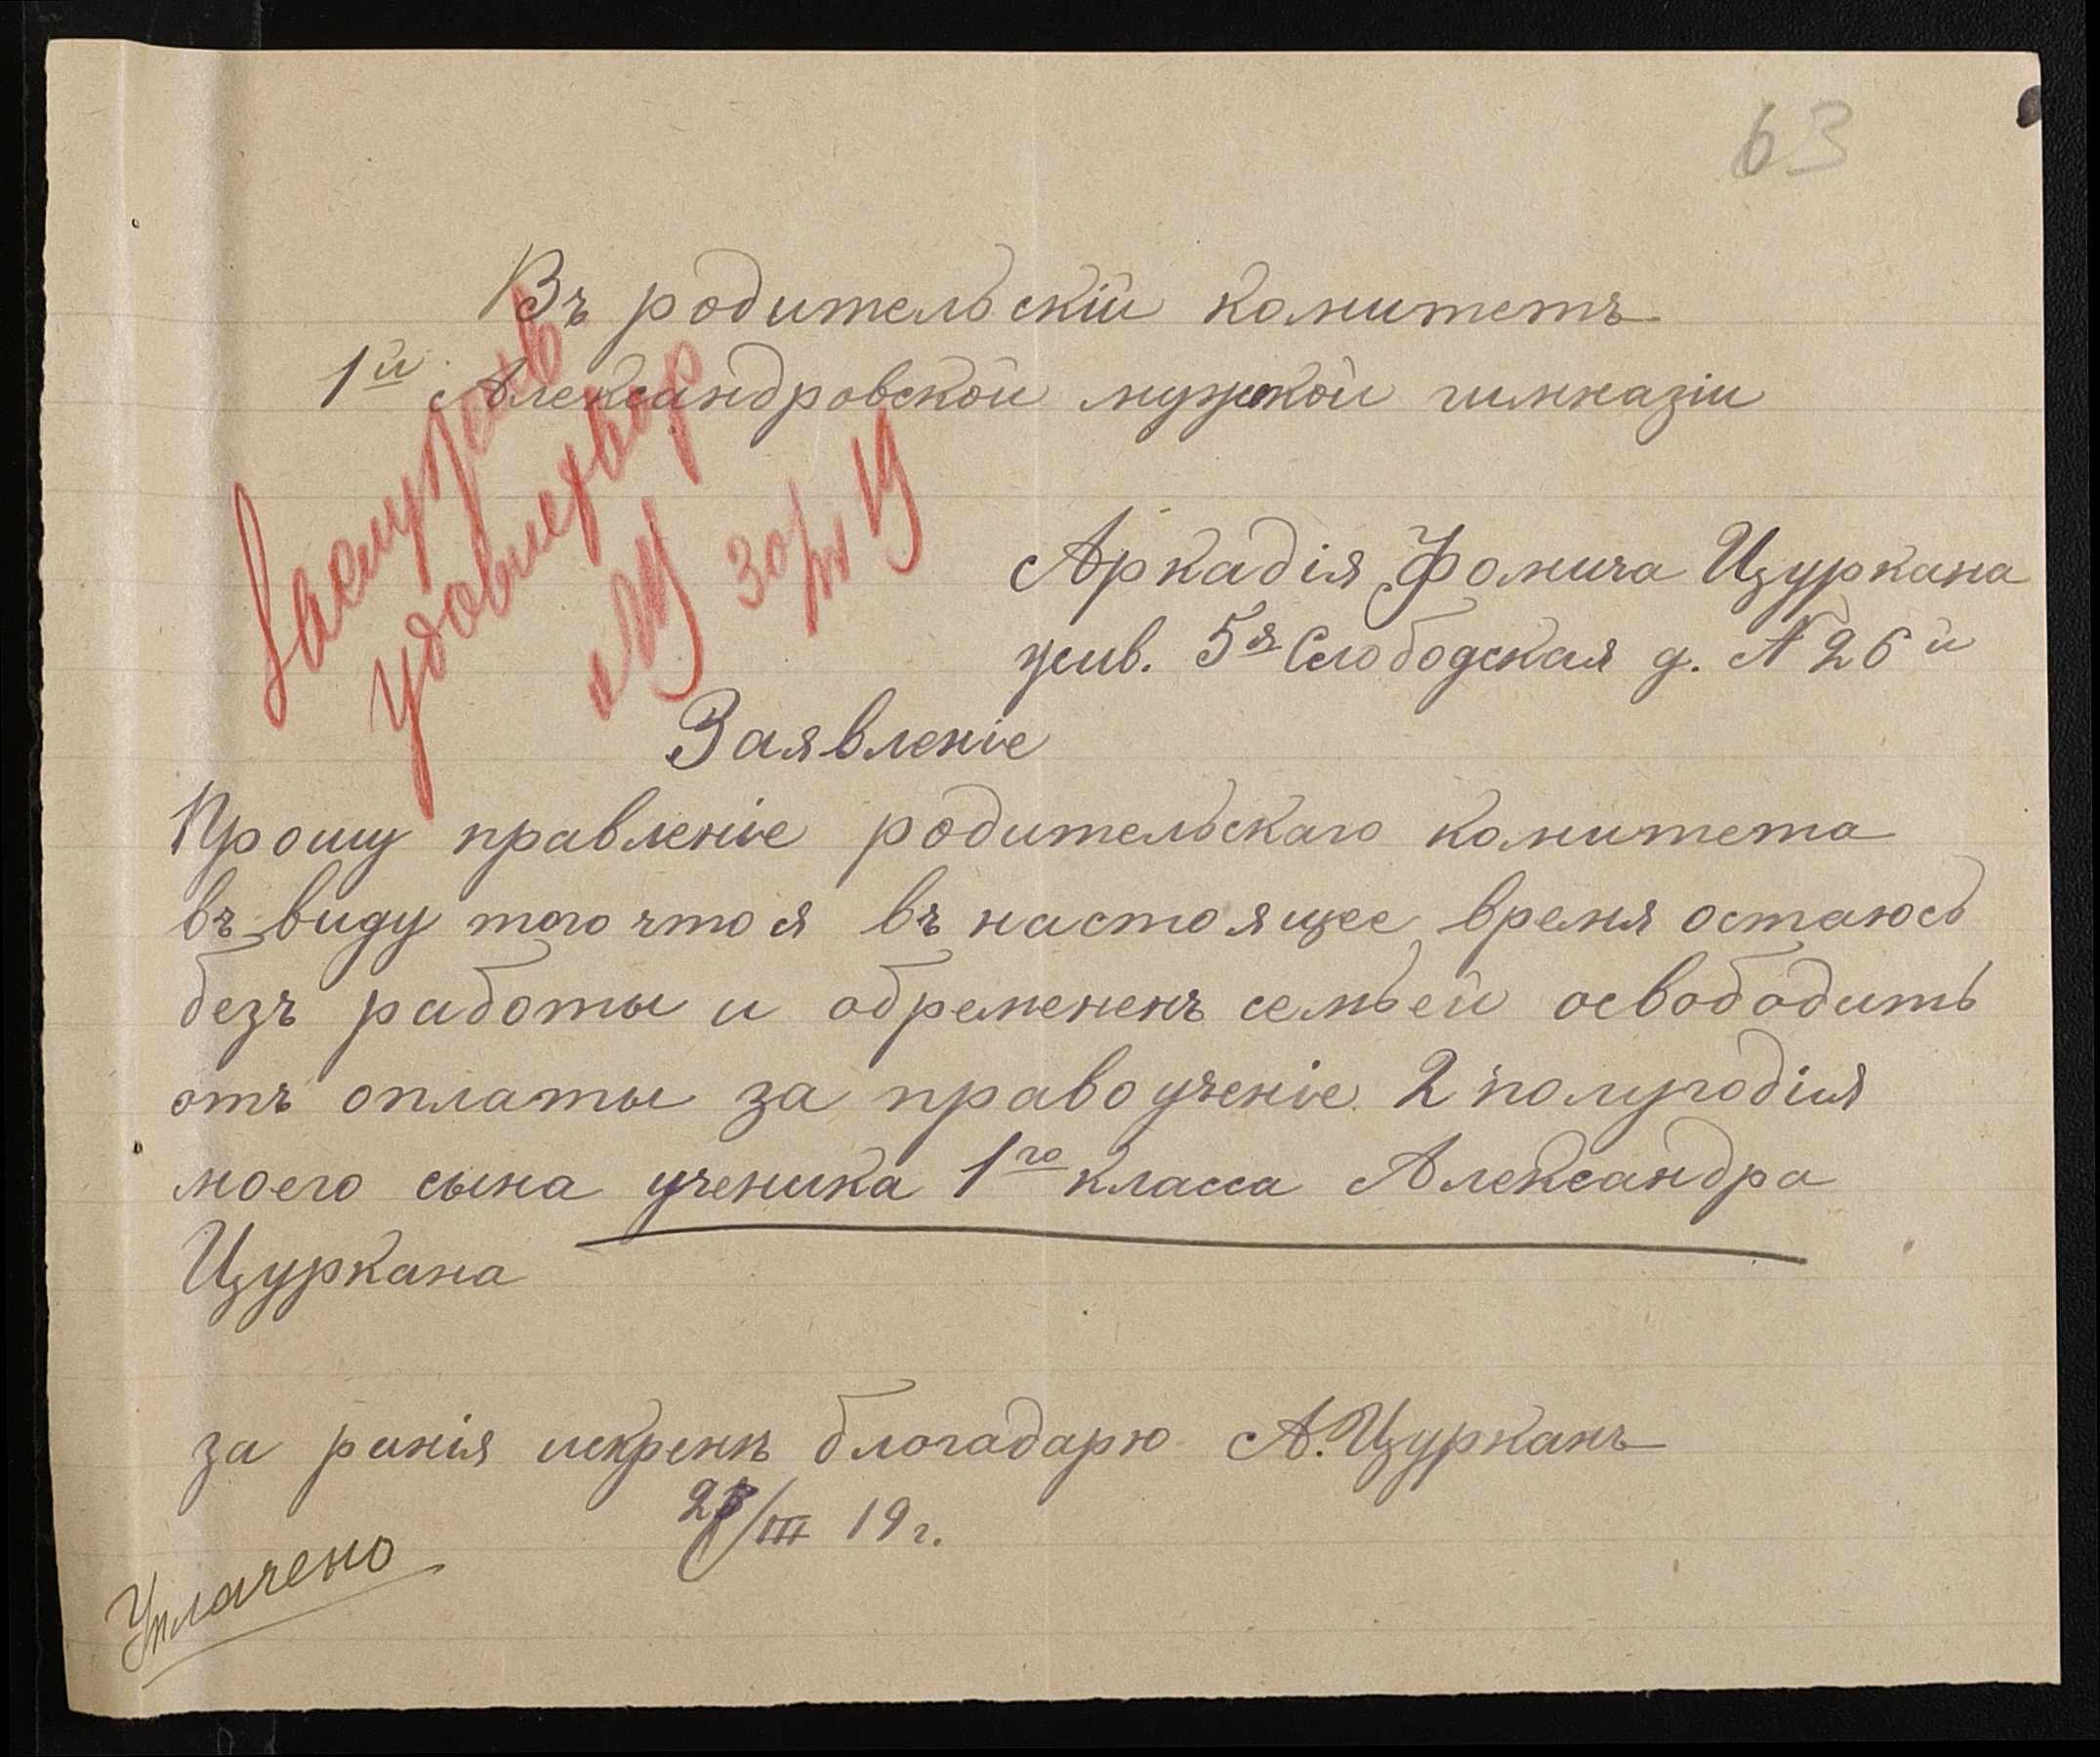 63
Въ родительскій комитетъ
1й Александровской мужской гимназіи
заслуж
удовлетвор
30/III
Аркадія Фомича Цуркана
жив. 5я Слободская д. № 26й
Заявленіе
Прошу правленіе родительскаго комитета
въ виду того что я въ настоящее время остаюсь
безъ работы и обремененъ семьей освободить
отъ оплаты за правоученіе 2 полугодія
моего сына ученика 1го класса Александра
Цуркана
за ранія искренъ благадарю А. Цурканъ
/III 19 г.
Уплачено